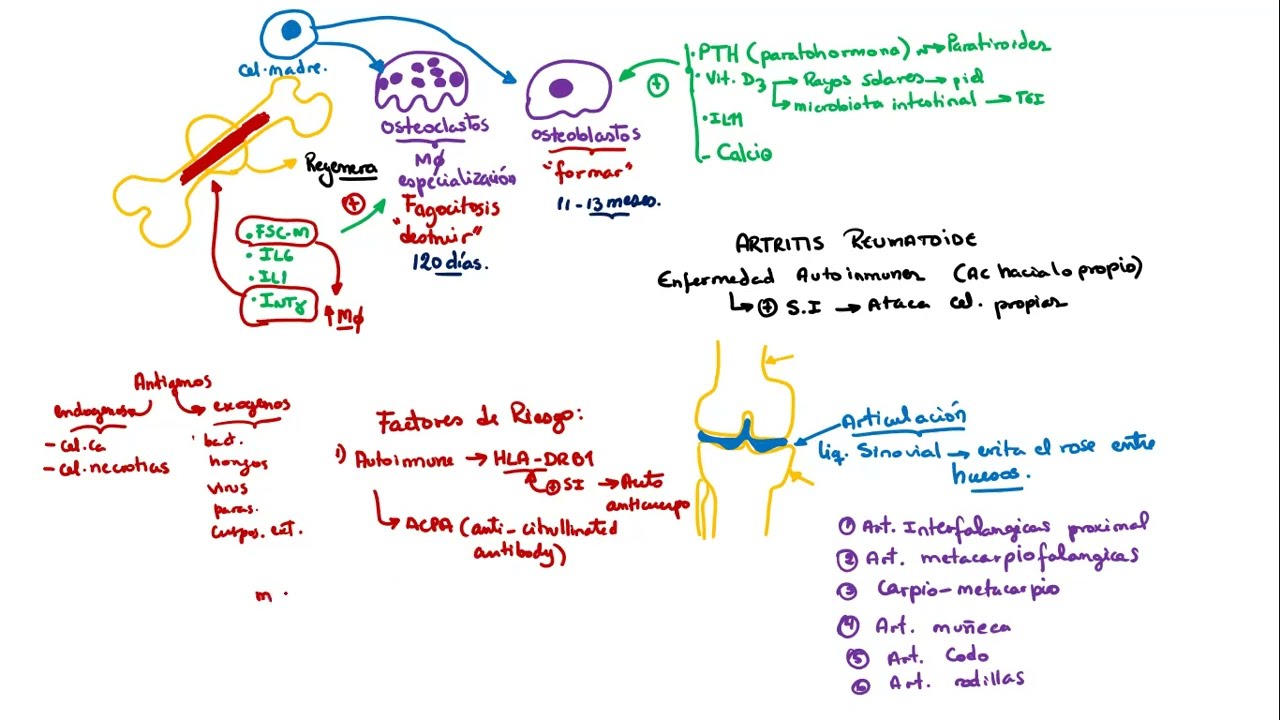 Cel. madre.
osteoclastos
MØ
especialización
Fagocitosis
"destruir"
120 días.
osteoblastos
"formar"
11-13 meses.
+
· PTH (paratohormona) → Paratiroides
· Vit. D3 → Rayos solares → piel
→ microbiota intestinal → TGI
· IL11
- Calcio
Regenera
+
· FSC-M
· IL6
· IL1
· INTγ
↑ MØ
ARTRITIS REUMATOIDE
Enfermedad Autoinmunes (Ac hacia lo propio)
↳ + S.I → Ataca cel. propias
Antigenos
endogenos
- cel. Ca
- cel. necroticas
exogenos
· bact.
hongos
virus
paras.
Cuerpos. ext.
m ·
Factores de Riesgo:
1) Autoinmune → HLA-DRB1
+ SI → Auto
anticuerpo
↳ ACPA (anti-citrullinated
antibody)
Articulación
liq. Sinovial → evita el rose entre
huesos.
① Art. Interfalangicas proximal
② Art. metacarpiofalangicas
③ Carpio-metacarpio
④ Art. muñeca
⑤ Art. Codo
⑥ Art. rodillas